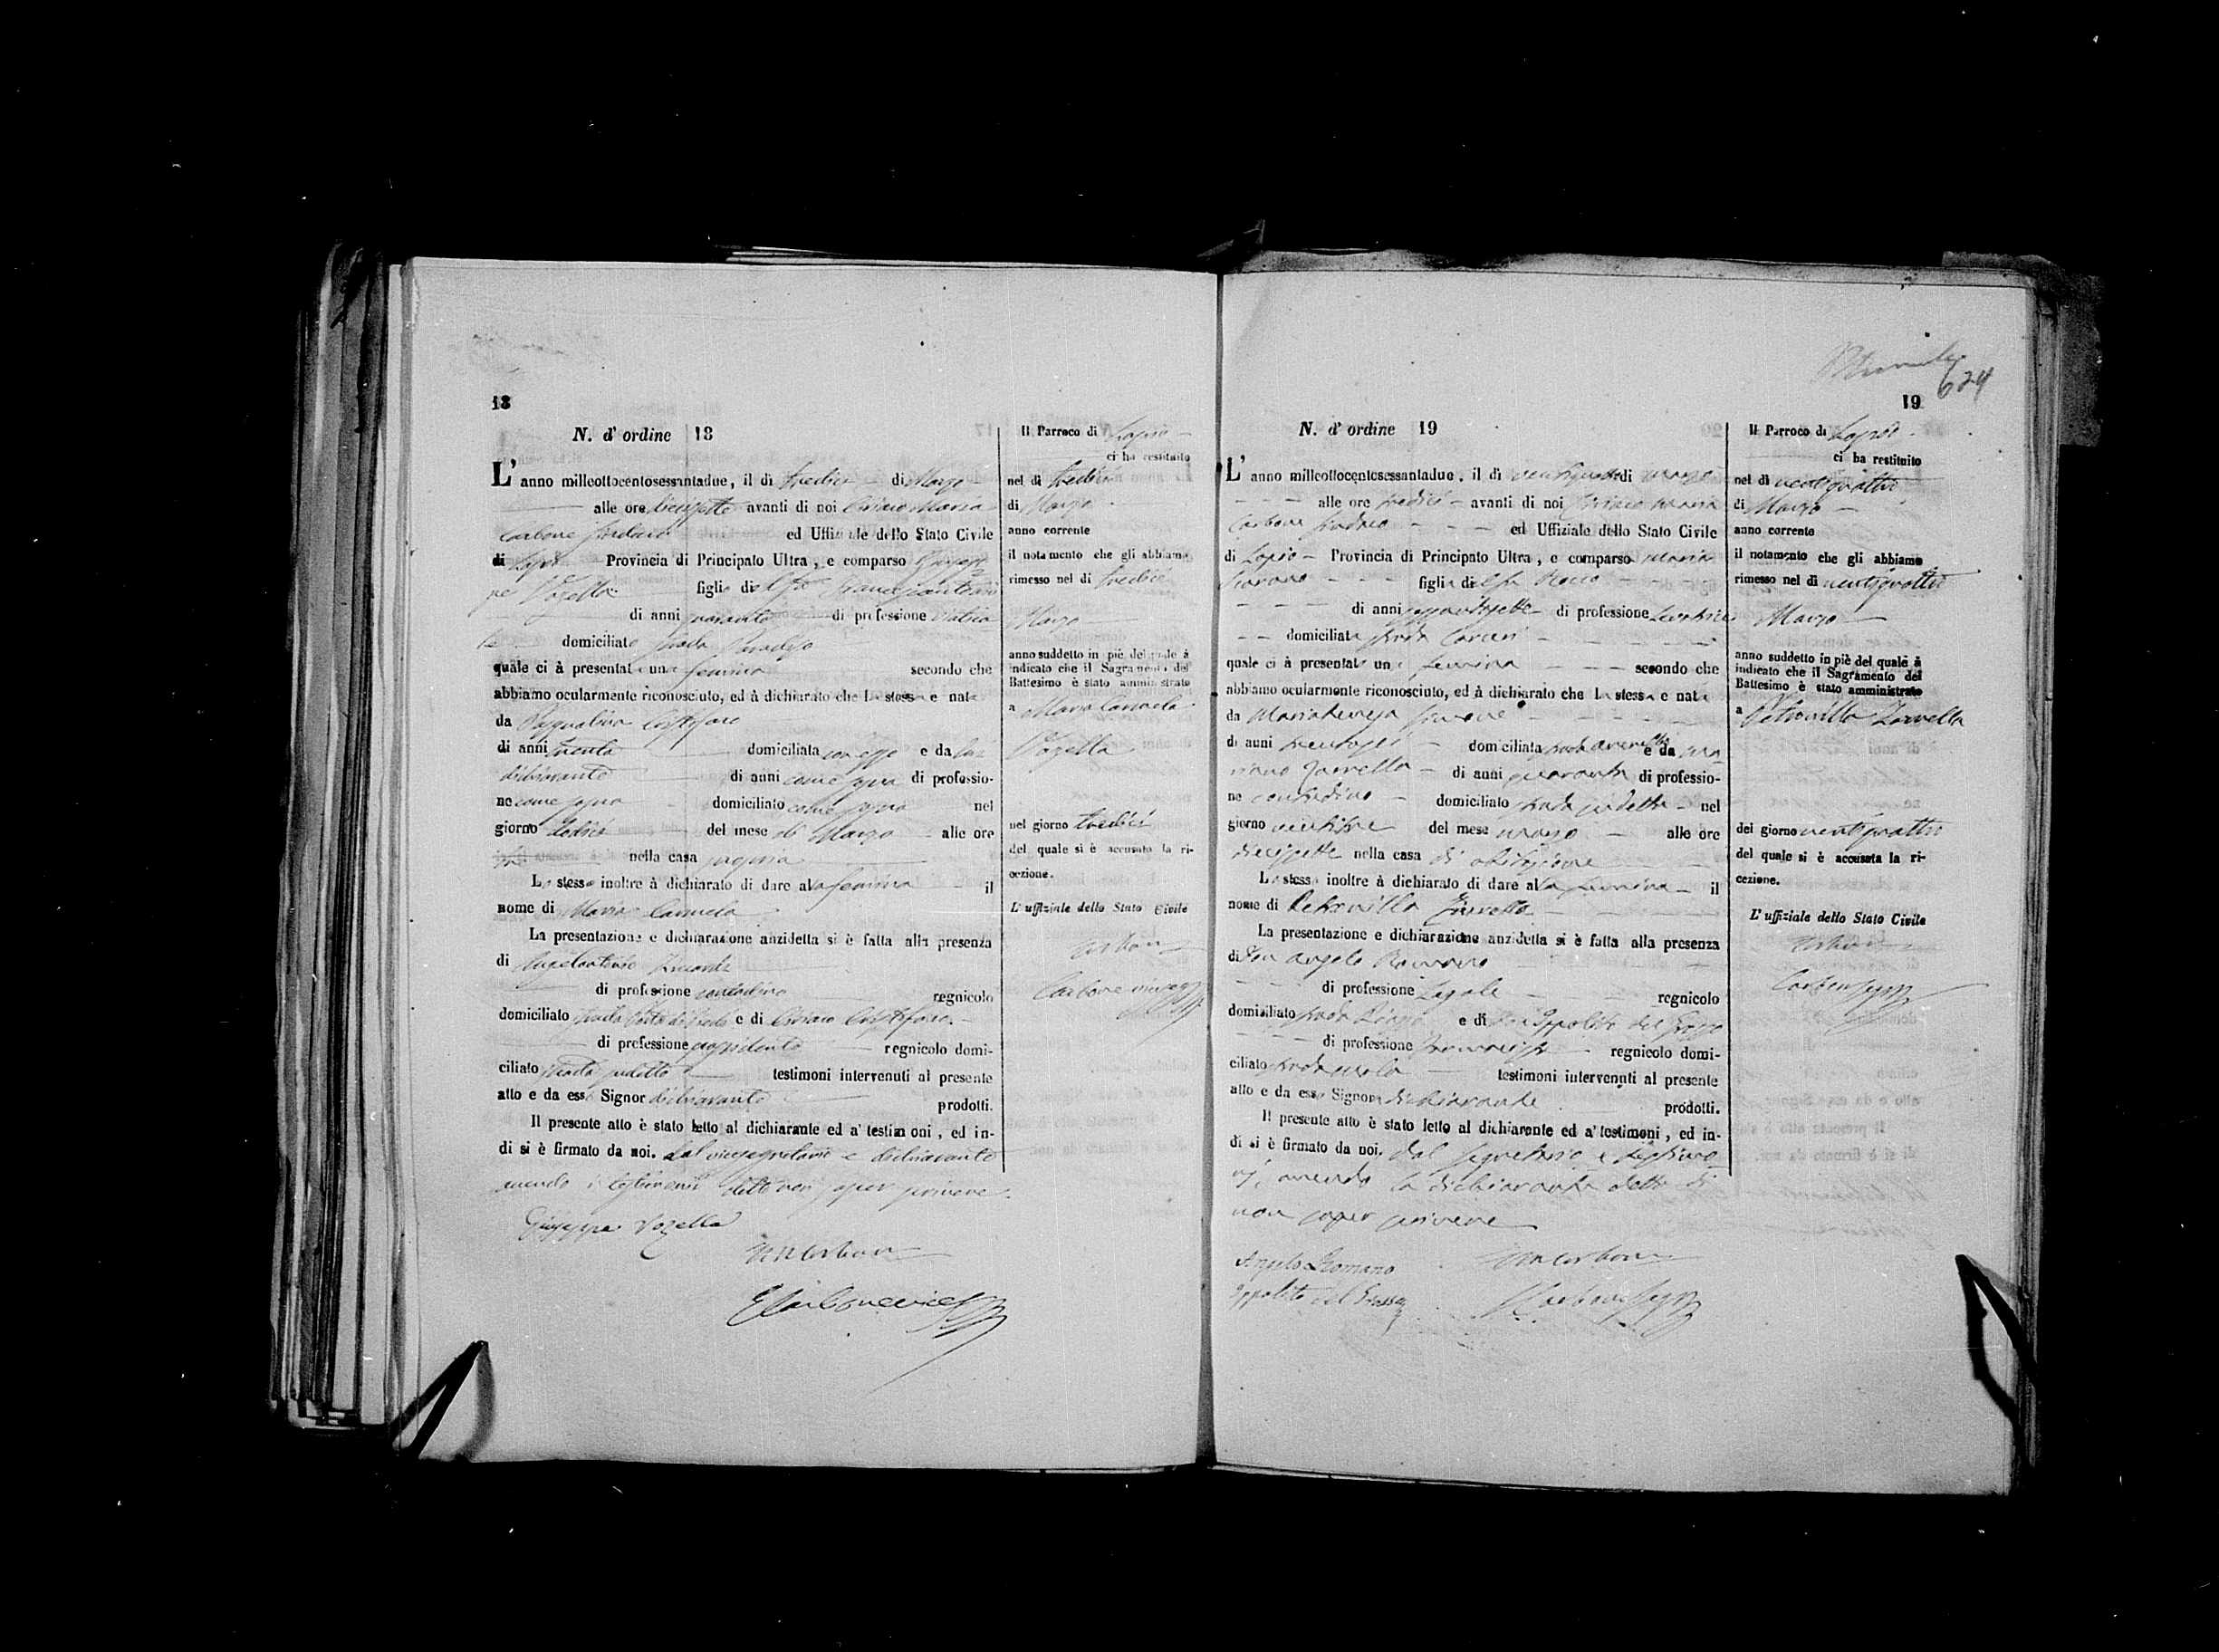 18
N. d' ordine 18
L' anno milleottocentosessantadue, il di tredici di Marzo
alle ore diecisette avanti di noi Ciriaco Maria
Carbone Sindaco ed Uffiziale dello Stato Civile
di Lapio Provincia di Principato Ultra, e comparso Giusep-
pe Vozella figlio di
di anni quaranta di professione
domiciliato strada
quale ci à presentato una femina secondo che
abbiamo ocularmente riconosciuto, ed à dichiarato che la stessa e nata
da Pasqualina
di anni trenta domiciliata con esso e da lui
dichiarante di anni come sopra di professio-
ne come sopra domiciliato come sopra nel
giorno dodici del mese di Marzo alle ore
nella casa propria
Lo stesso inoltre à dichiarato di dare alla femina il
nome di Maria Carmela
La presentazione e dichiarazione anzidetta si è fatta alla presenza
di Angelantonio
di professione contadino regnicolo
domiciliato strada e di Ciriaco
di professione regnicolo domi-
ciliato strada sudetta testimoni intervenuti al presente
atto e da esso Signor dichiarante prodotti.
Il presente atto è stato letto al dichiarante ed a' testimoni, ed in-
di si è firmato da noi, dal vicesegretario e dichiarante
avendo i testimoni detto non saper scrivere.
Giuseppe Vozella
Carbone
Carbone
Il Parroco di Lapio
ci ha restituito
nel di tredici
di Marzo
anno corrente
il notamento che gli abbiamo
rimesso nel di tredici
Marzo
anno suddetto in piè del quale à
indicato che il Sagramento del
Battesimo è stato amministrato
a Maria Carmela
Vozella
nel giorno tredici
del quale si è accusato la ri-
cezione.
L' uffiziale dello Stato Civile
Carbone
Carbone
624
19
N. d' ordine 19
L' anno milleottocentosessantadue, il di ventiquattro di marzo
alle ore tredici avanti di noi Ciriaco Maria
Carbone Sindaco ed Uffiziale dello Stato Civile
di Lapio Provincia di Principato Ultra, e comparso Maria
figlia di
di anni di professione Levatrice
domiciliata strada Carceri
quale ci à presentato una femina secondo che
abbiamo ocularmente riconosciuto, ed à dichiarato che la stessa e nata
da Mariateresa
di anni domiciliata strada e da
Zarrella di anni quaranta di professio-
ne contadino domiciliato strada sudetta nel
giorno ventitre del mese marzo alle ore
diecisette nella casa di abitazione
La stessa inoltre à dichiarato di dare alla femina il
nome di Petronilla Zarrella
La presentazione e dichiarazione anzidetta si è fatta alla presenza
di Don Angelo Romano
di professione Legale regnicolo
domiciliato strada e di Don Ippolito del Grosso
di professione regnicolo domi-
ciliato strada testimoni intervenuti al presente
atto e da essa Signora dichiarante prodotti.
Il presente atto è stato letto al dichiarante ed a' testimoni, ed in-
di si è firmato da noi, dal segretario e testimo-
nj, avendo la dichiarante detto di
non saper scrivere
Angelo Romano
Carbone
Ippolito del Grosso
Carbone
Il Parroco di Lapio
ci ha restituito
nel di ventiquattro
di Marzo
anno corrente
il notamento che gli abbiamo
rimesso nel di ventiquattro
Marzo
anno suddetto in piè del quale à
indicato che il Sagramento del
Battesimo è stato amministrato
a Petronilla Zarrella
del giorno ventiquattro
del quale si è accusata la ri-
cezione.
L' uffiziale dello Stato Civile
Carbone
Carbone